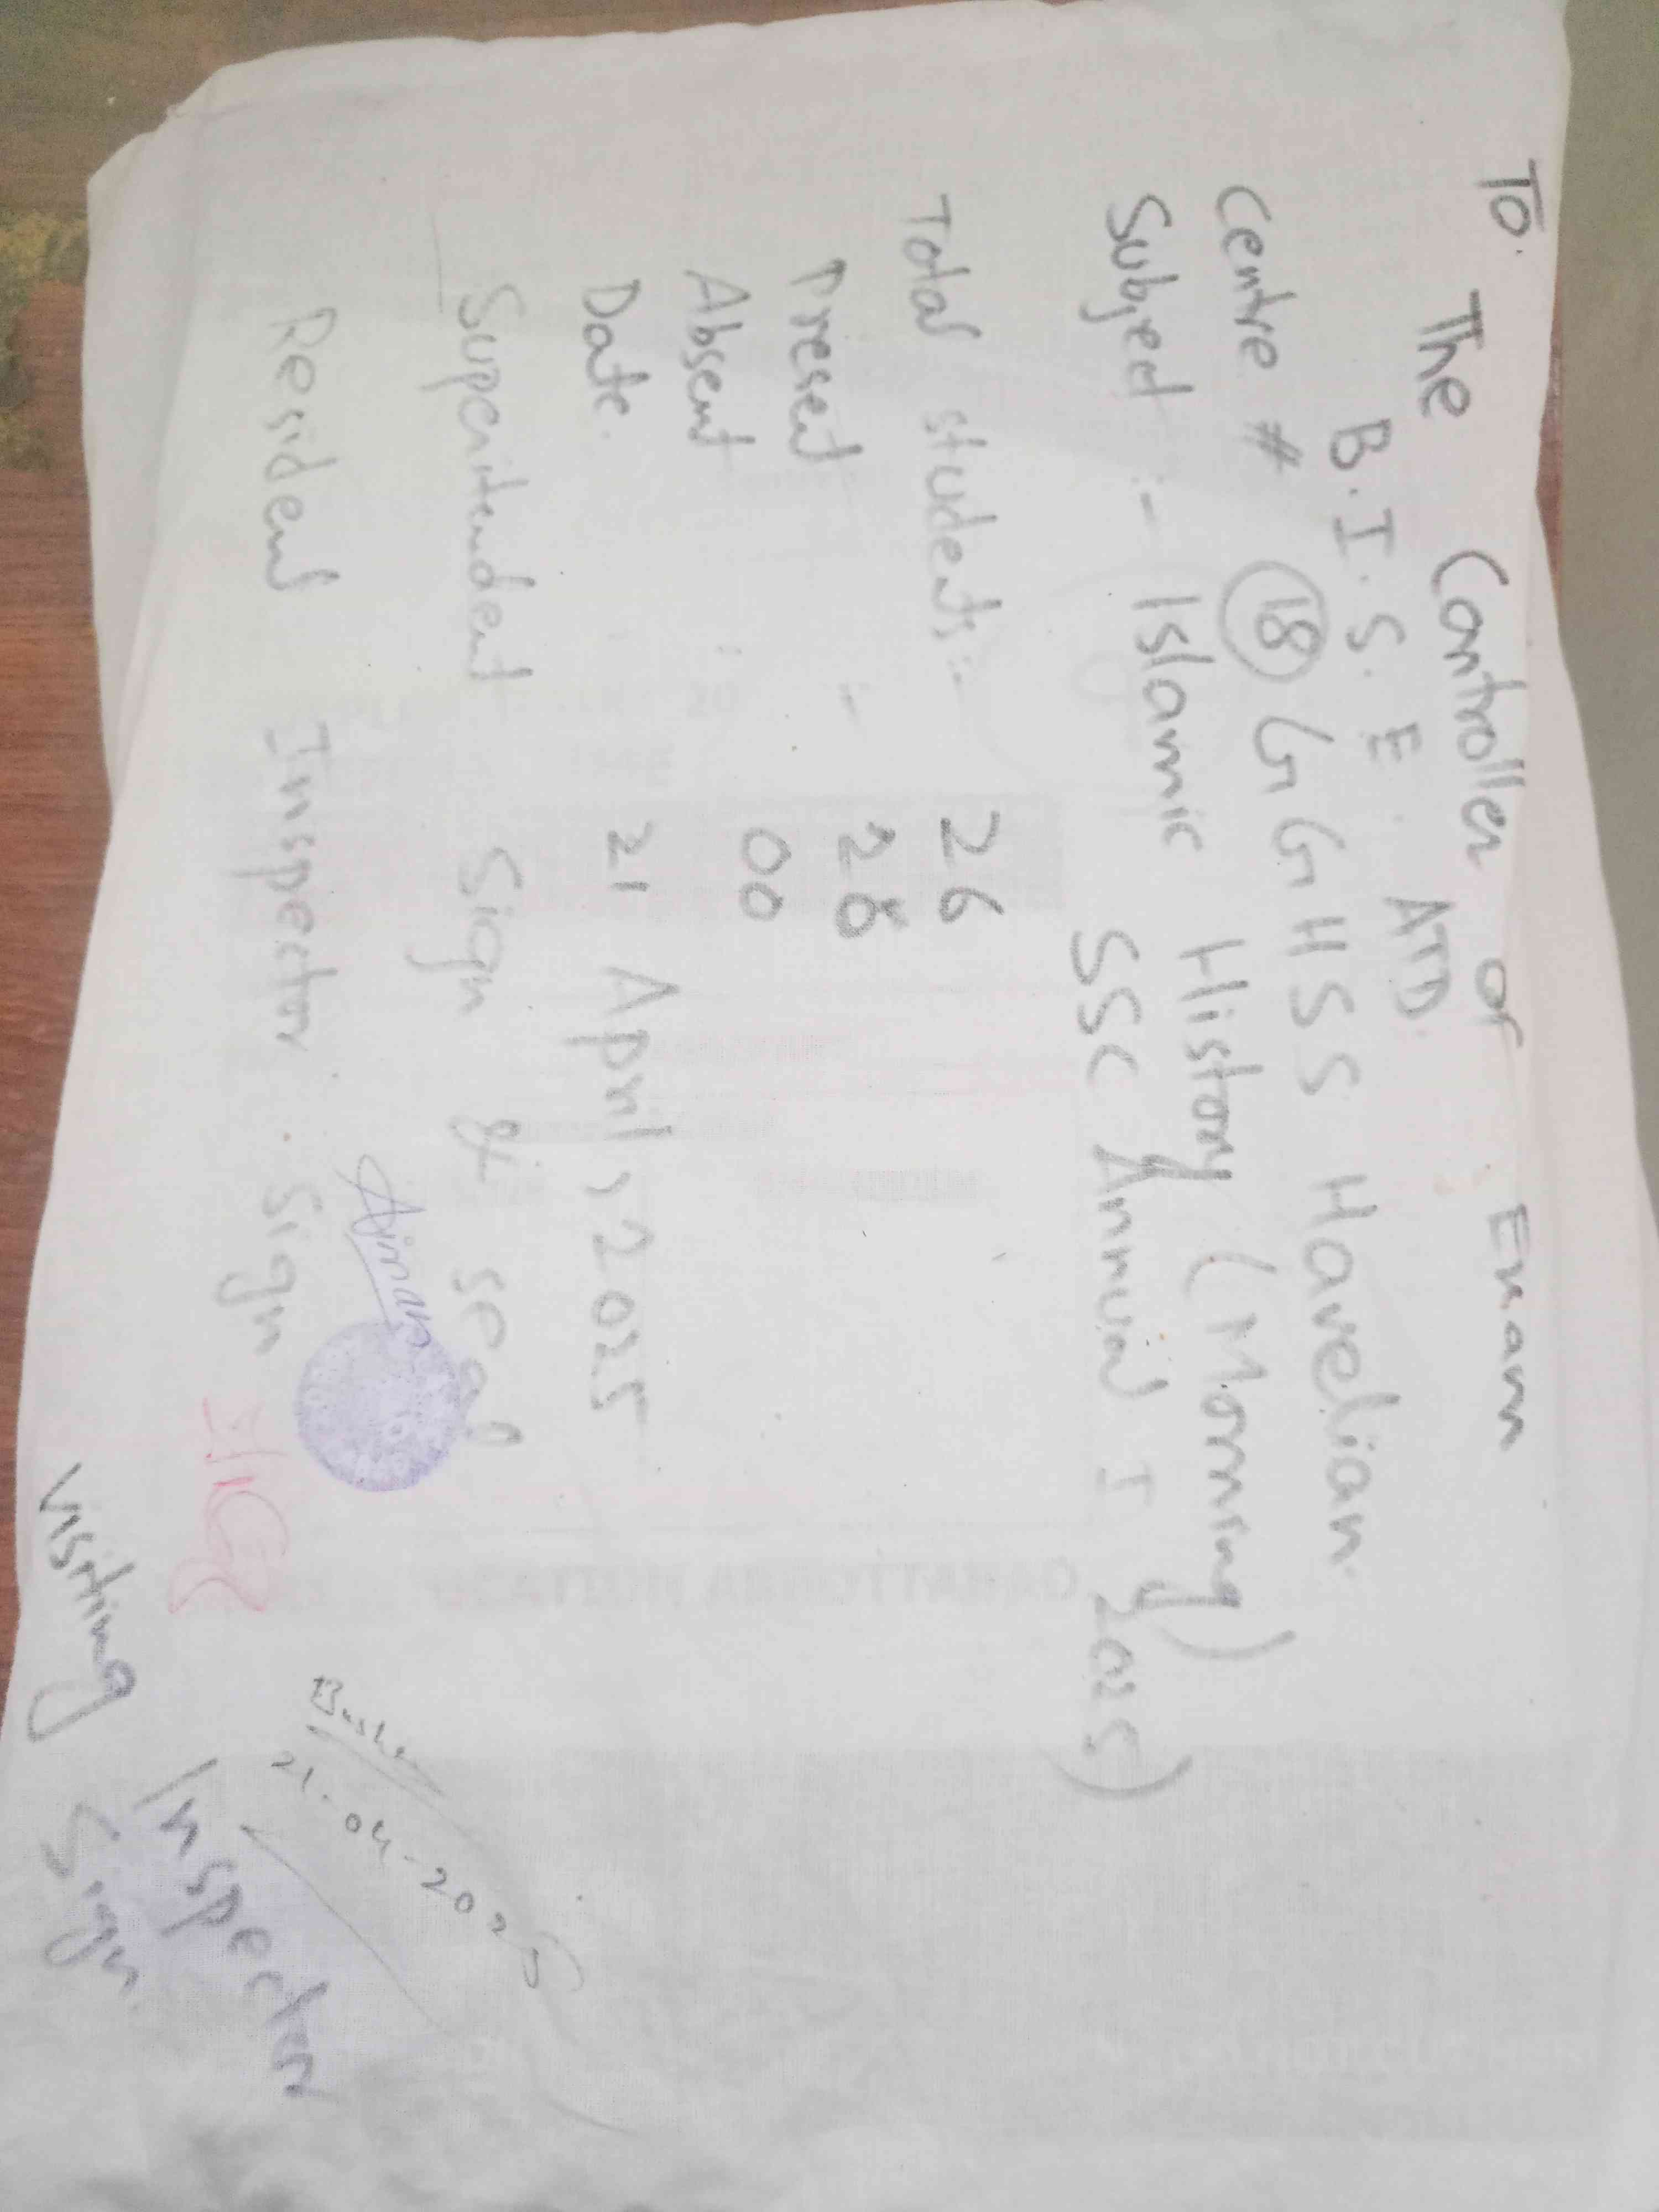 To.
The Controller of Exam
B.I.S.E. ATD.
Centre # 18 GGHSS Havelian.
Subject :- Islamic History (Morning)
SSC Annual I 2025)
Total students :- 26
Present - 26
Absent : 00
Date. 21 April, 2025
Superitendent Sign & seal
Resident Inspector. Sign
Visiting Inspector
Sign.
21-04-2025
UCATION ABBOTTABAD